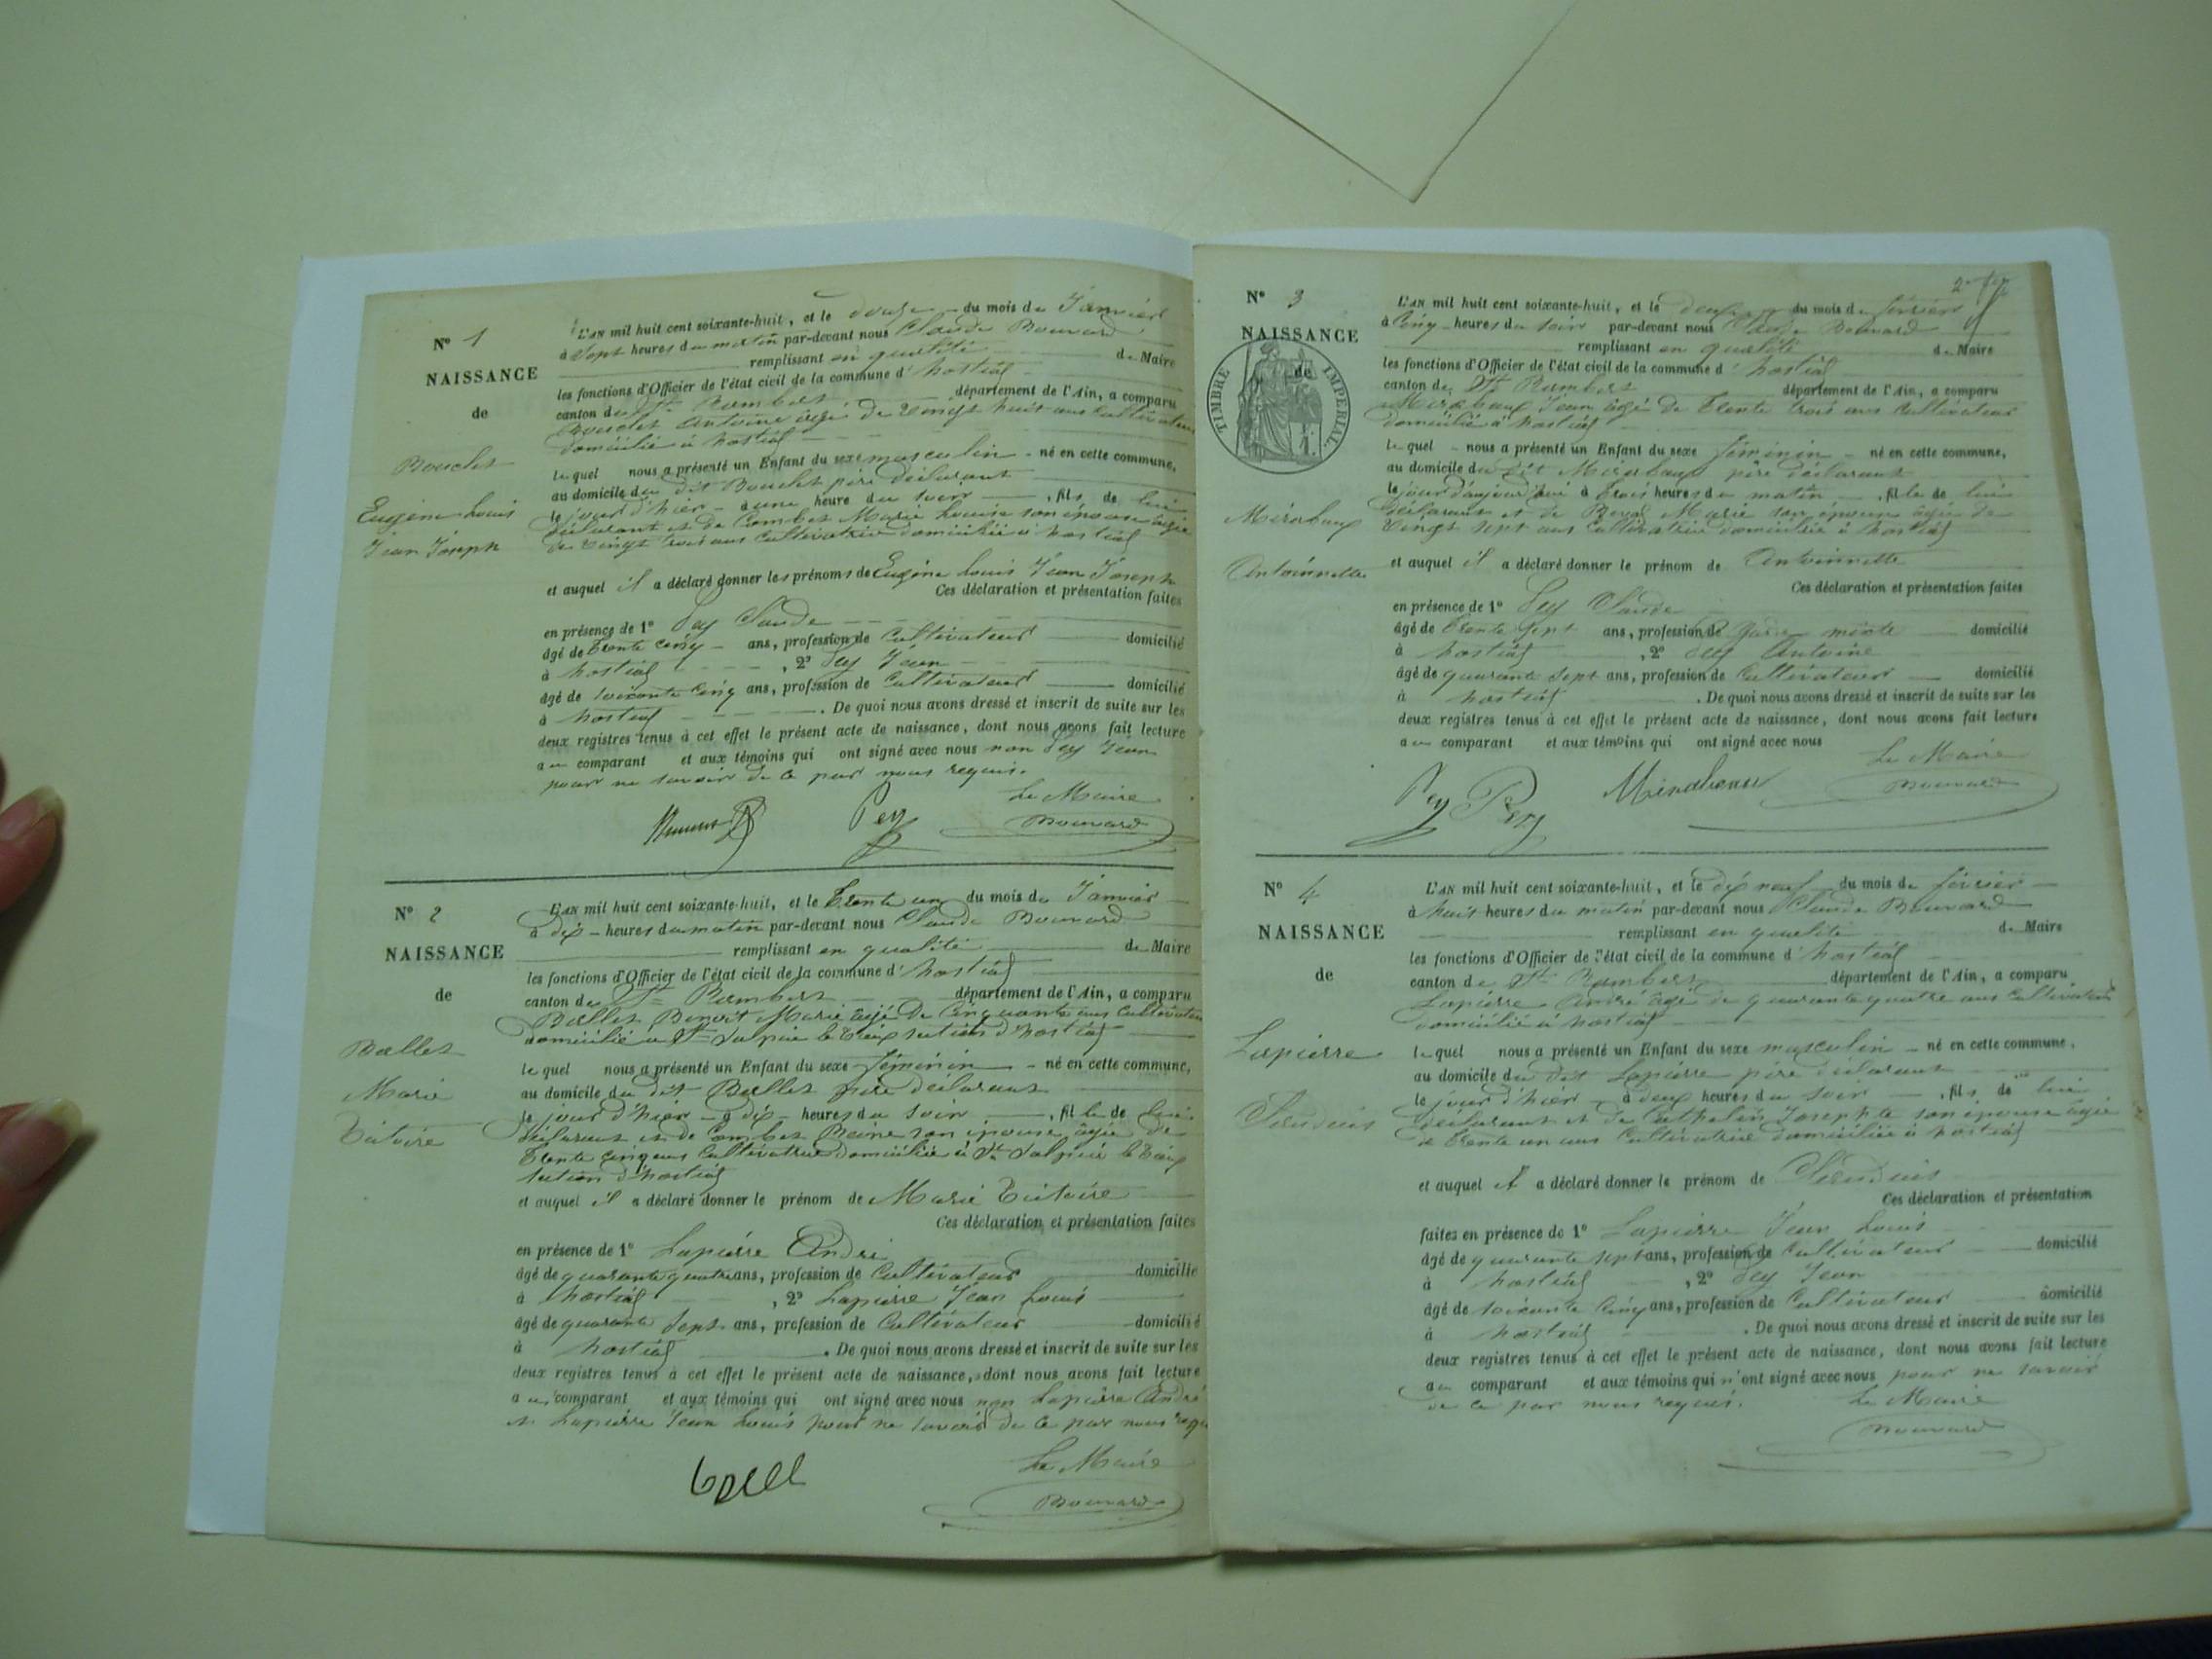 N° 1
NAISSANCE
de
Bouclet
Eugène Louis
Jean Joseph
L'AN mil huit cent soixante-huit, et le douze du mois de Janvier
à Sept heures du matin par-devant nous Claude Bouvard
remplissant en qualité de Maire
les fonctions d'Officier de l'état civil de la commune d'hostiaz
canton de St Rambert département de l'Ain, a comparu
Bouclet Antoine âgé de vingt huit ans Cultivateur
domicilié à hostiaz
lequel nous a présenté un Enfant du sexe masculin - né en cette commune,
au domicile du dit Bouclet père déclarant
le jour d'hier - à une heure du soir , fils de lui
déclarant et de Combet Marie Louise son épouse âgée
de vingt trois ans Cultivatrice domiciliée à hostiaz
et auquel il a déclaré donner les prénoms de Eugène Louis Jean Joseph
Ces déclaration et présentation faites
en présence de 1° Pey Claude
âgé de trente cinq ans, profession de Cultivateur domicilié
à hostiaz , 2° Pey Jean
âgé de soixante cinq ans, profession de Cultivateur domicilié
à hostiaz . De quoi nous avons dressé et inscrit de suite sur les
deux registres tenus à cet effet le présent acte de naissance, dont nous avons fait lecture
au comparant et aux témoins qui ont signé avec nous non Pey Jean
pour ne savoir de ce par nous requis.
Le Maire
Pey
Bouvard
N° 2
NAISSANCE
de
Ballet
Marie
Victoire
L'AN mil huit cent soixante-huit, et le trente un du mois de Janvier
à dix - heures du matin par-devant nous Claude Bouvard
remplissant en qualité de Maire
les fonctions d'Officier de l'état civil de la commune d'hostiaz
canton de St Rambert département de l'Ain, a comparu
Ballet Benoit Marie âgé de Cinquante ans Cultivateur
domicilié à St Sulpice le Vieux section d'hostiaz
lequel nous a présenté un Enfant du sexe féminin - né en cette commune,
au domicile du dit Ballet père déclarant
le jour d'hier - à dix - heures du soir , fille de lui
déclarant et de Combet Reine son épouse âgée de
trente cinq ans Cultivatrice domiciliée à St Sulpice le Vieux
section d'hostiaz
et auquel il a déclaré donner le prénom de Marie Victoire
Ces déclaration et présentation faites
en présence de 1° Lapierre André
âgé de quarante quatre ans, profession de Cultivateur domicilié
à hostiaz , 2° Lapierre Jean Louis
âgé de quarante Sept ans, profession de Cultivateur domicilié
à hostiaz . De quoi nous avons dressé et inscrit de suite sur les
deux registres tenus à cet effet le présent acte de naissance, dont nous avons fait lecture
au comparant et aux témoins qui ont signé avec nous non Lapierre André
et Lapierre Jean Louis pour ne savoir de ce par nous requis
Le Maire
Bouvard
N° 3
NAISSANCE
de
TIMBRE IMPERIAL.
Mirabaux
Antoinnette
L'AN mil huit cent soixante-huit, et le deux du mois de février
à Cinq - heures du soir par-devant nous Claude Bouvard
remplissant en qualité de Maire
les fonctions d'Officier de l'état civil de la commune d'hostiaz
canton de St Rambert département de l'Ain, a comparu
Mirabaux Jean âgé de trente trois ans Cultivateur
domicilié à hostiaz
lequel - nous a présenté un Enfant du sexe féminin - né en cette commune,
au domicile du dit Mirabaux père déclarant
le jour d'aujourd'hui à trois heures du matin , fille de lui
déclarant et de Marie son épouse âgée de
vingt sept ans Cultivatrice domiciliée à hostiaz
et auquel il a déclaré donner le prénom de Antoinnette
Ces déclaration et présentation faites
en présence de 1° Pey Claude
âgé de trente Sept ans, profession de Garde mixte domicilié
à hostiaz , 2° Pey Antoine
âgé de quarante Sept ans, profession de Cultivateur domicilié
à hostiaz . De quoi nous avons dressé et inscrit de suite sur les
deux registres tenus à cet effet le présent acte de naissance, dont nous avons fait lecture
au comparant et aux témoins qui ont signé avec nous
Le Maire
Pey Pey
Bouvard
N° 4
NAISSANCE
de
Lapierre
L'AN mil huit cent soixante-huit, et le dix neuf du mois de février
à huit heures du matin par-devant nous Claude Bouvard
remplissant en qualité de Maire
les fonctions d'Officier de l'état civil de la commune d'hostiaz
canton de St Rambert département de l'Ain, a comparu
Lapierre André âgé de quarante quatre ans Cultivateur
domicilié à hostiaz
lequel nous a présenté un Enfant du sexe masculin - né en cette commune,
au domicile du dit Lapierre père déclarant
le jour d'hier - à deux heures du soir , fils de lui
déclarant et de Cathelin Josephte son épouse âgée
de trente un ans Cultivatrice domiciliée à hostiaz
et auquel il a déclaré donner le prénom de
Ces déclaration et présentation
faites en présence de 1° Lapierre Jean Louis
âgé de quarante sept ans, profession de Cultivateur domicilié
à hostiaz , 2° Pey Jean
âgé de soixante Cinq ans, profession de Cultivateur domicilié
à hostiaz . De quoi nous avons dressé et inscrit de suite sur les
deux registres tenus à cet effet le présent acte de naissance, dont nous avons fait lecture
au comparant et aux témoins qui n'ont signé avec nous pour ne savoir
de ce par nous requis.
Le Maire
Bouvard